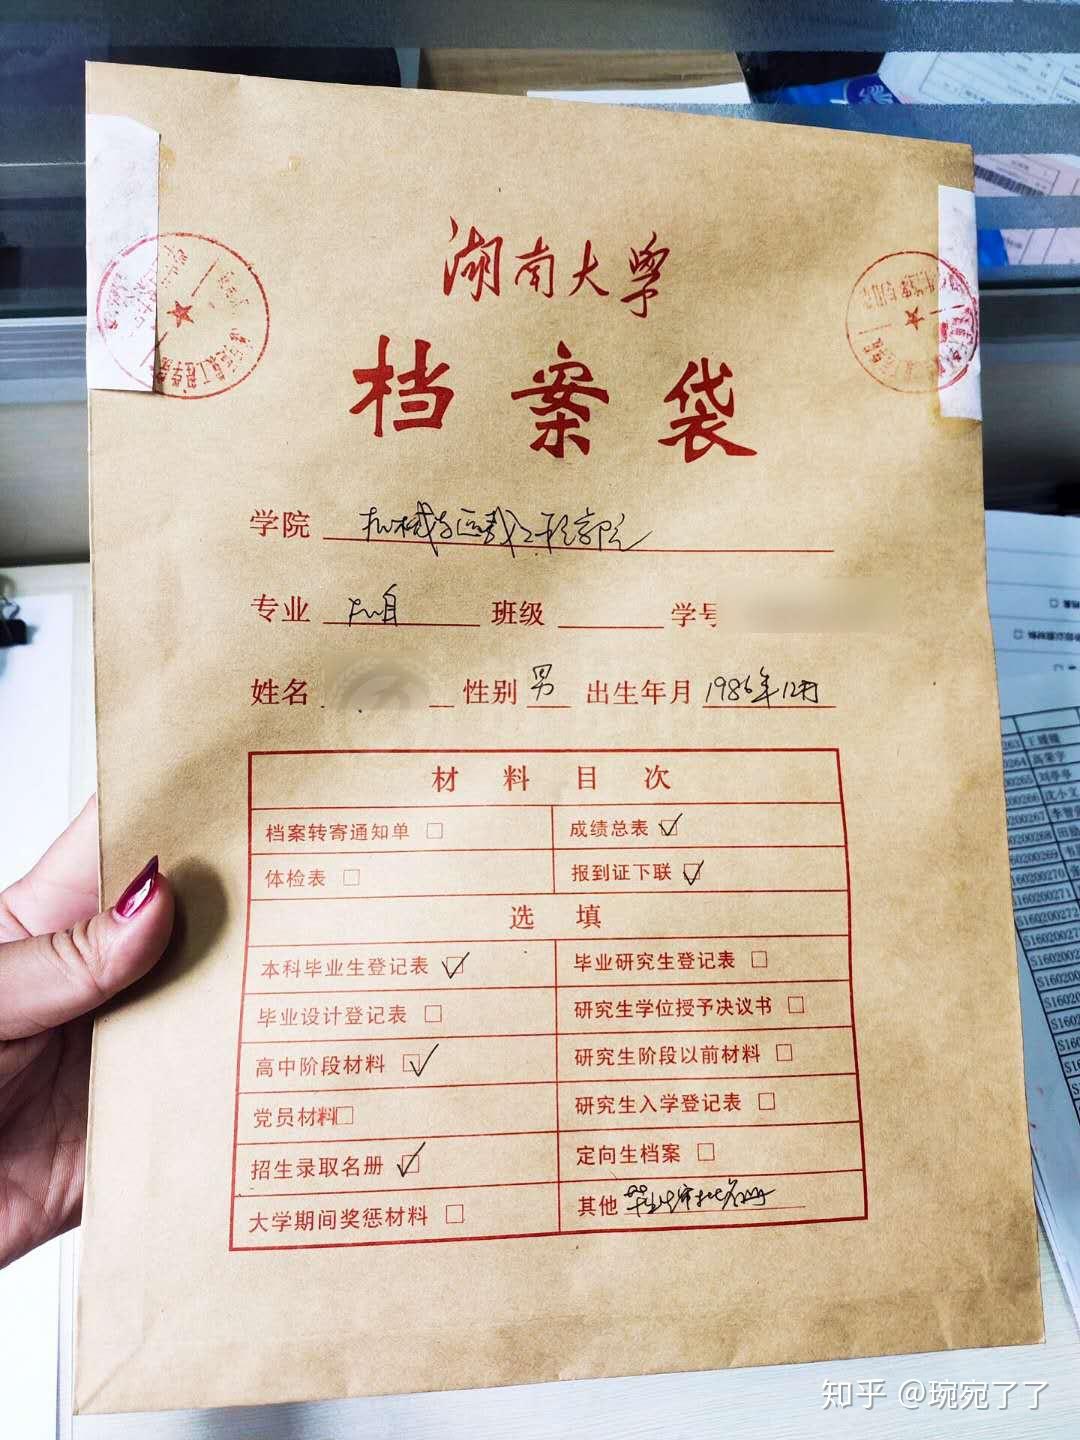 湖南大学
档案袋
学院 机械与运载工程学院
专业 机自 班级 学号
姓名 性别 男 出生年月 1986年12月
材料目次
档案转寄通知单 □ 成绩总表 ☑
体检表 □ 报到证下联 ☑
选填
本科毕业生登记表 ☑ 毕业研究生登记表 □
毕业设计登记表 □ 研究生学位授予决议书 □
高中阶段材料 ☑ 研究生阶段以前材料 □
党员材料 □ 研究生入学登记表 □
招生录取名册 ☑ 定向生档案 □
大学期间奖惩材料 □ 其他 毕业生审批名册
知乎 @琬宛了了